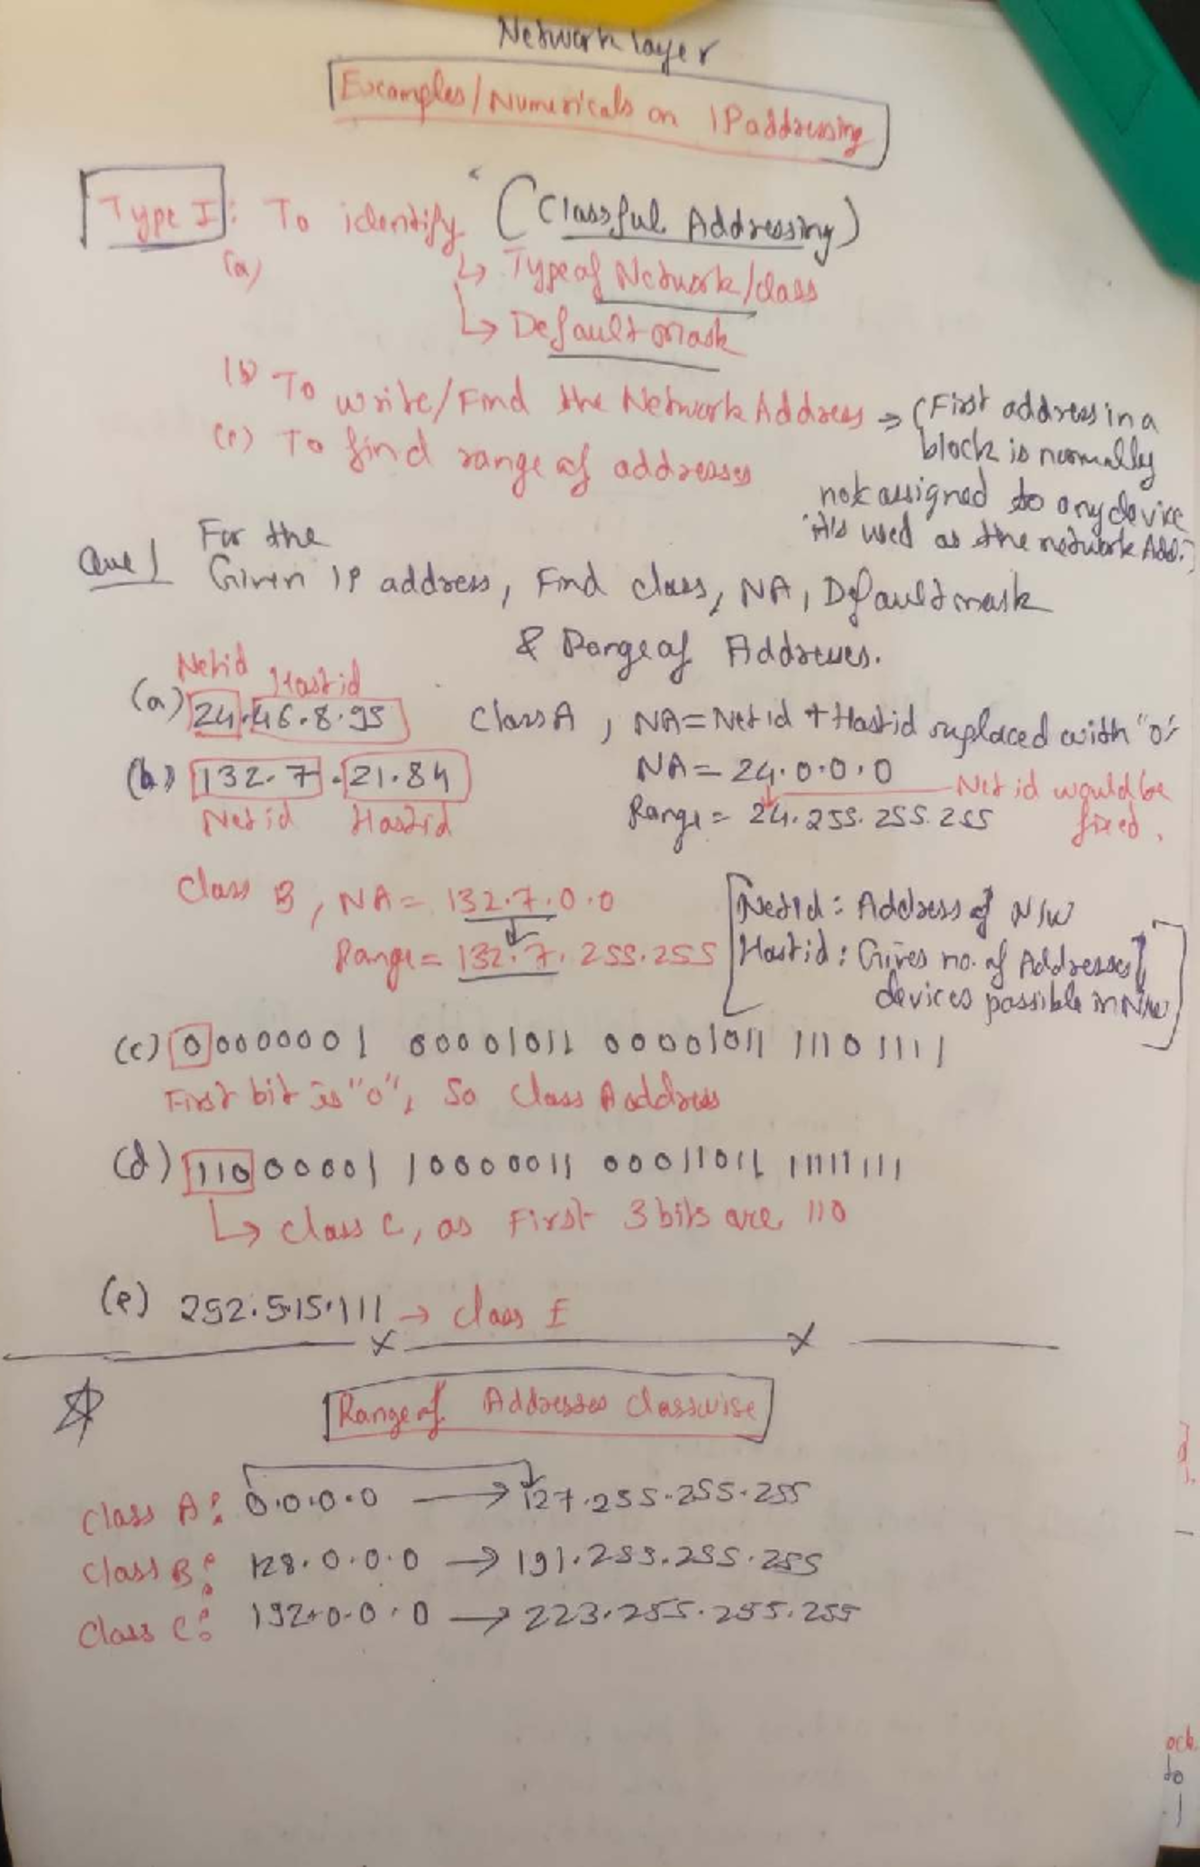 Network layer
Examples/Numericals on IP addressing
Type I: To identify (Classful Addressing)
(a) ↳ Type of Network/class
↳ Default Mask
(b) To write/Find the Network Address ⇒ (First address in a
block is normally
(c) To find range of addresses
not assigned to any device
it's used as the network Add.)
Que 1 For the
Given IP address, Find class, NA, Default mask
& Range of Addresses.
Netid Hostid
(a) 24.46.8.95 Class A, NA = Netid + Hostid replaced with "0"
NA = 24.0.0.0
(b) 132.7.21.84 Net id would be
fixed.
Netid Hostid Range = 24.255.255.255
Class B, NA = 132.7.0.0
Range = 132.7.255.255
Netid: Address of N/W
Hostid: Gives no. of Addresses/
devices possible in N/W
(c) 00000001 00001011 00001011 11101111
First bit is "0", So Class A address
(d) 11000001 10000011 00011011 11111111
↳ class C, as First 3 bits are 110
(e) 252.5.15.111 → class E
Range of Addresses Classwise
Class A: 0.0.0.0 → 127.255.255.255
Class B: 128.0.0.0 → 191.255.255.255
Class C: 192.0.0.0 → 223.255.255.255
ock
to